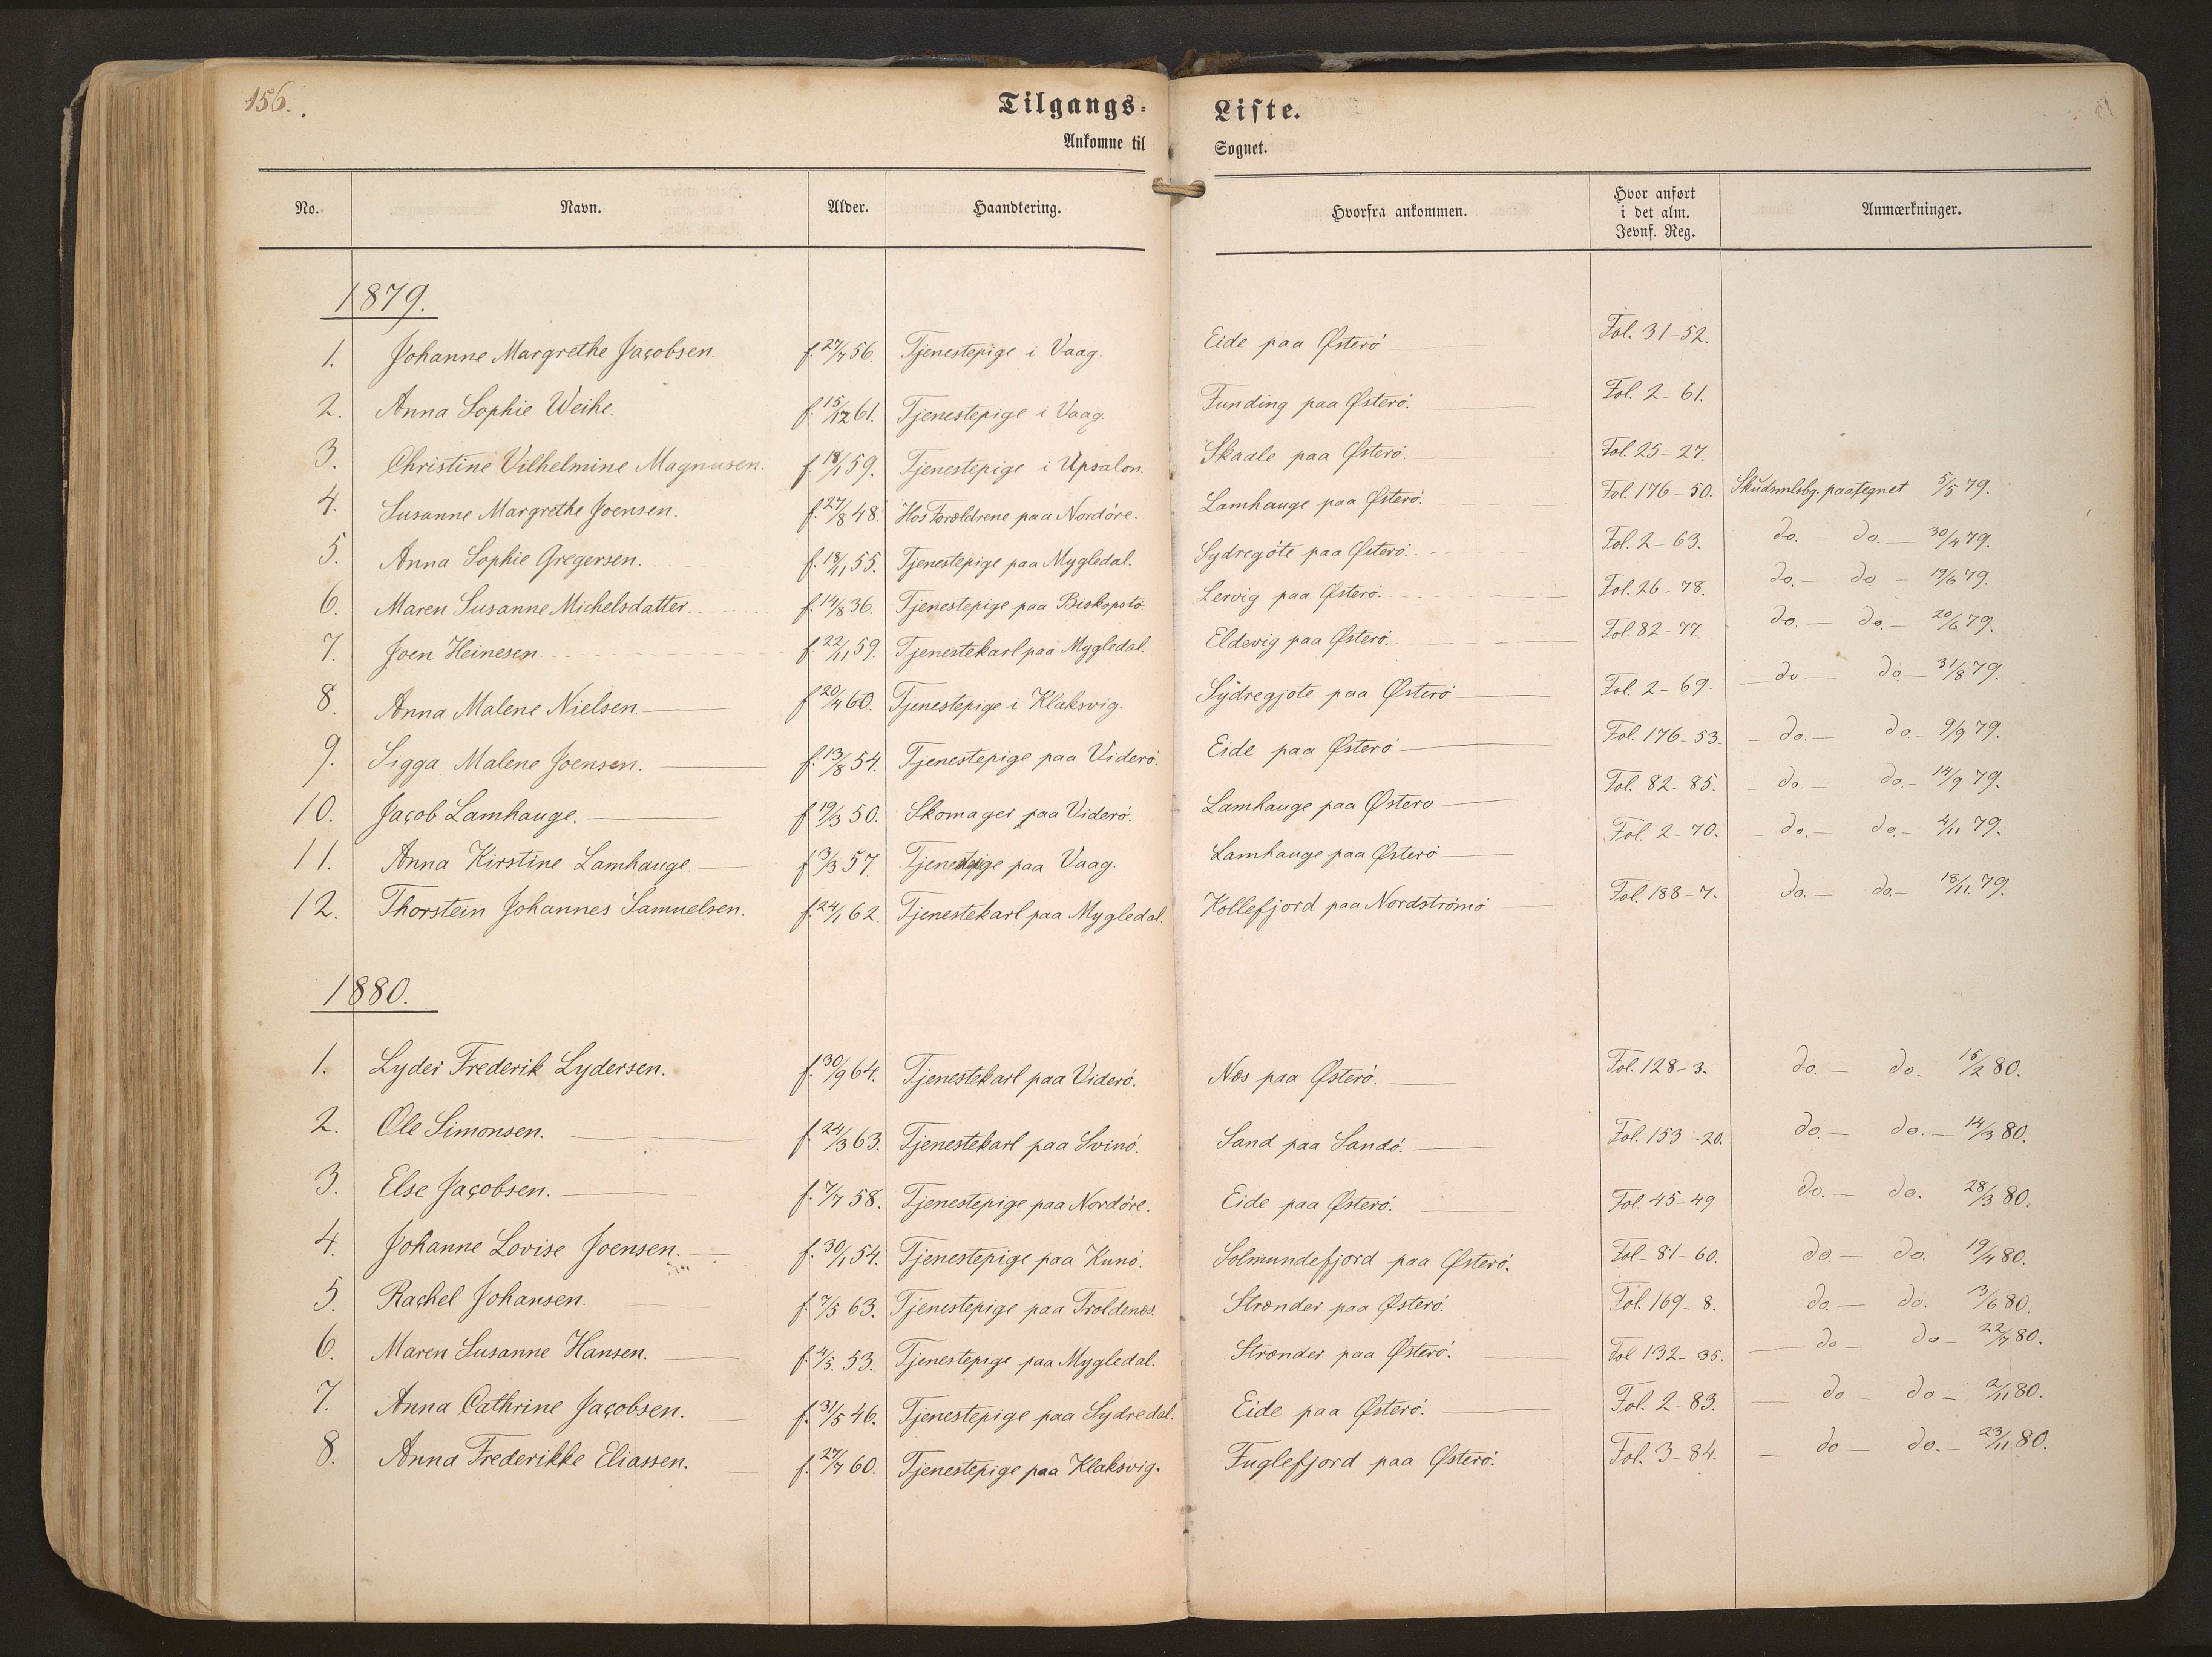 156.
Tilgangs- Liste.
Ankomne til Sognet.
No. Navn. Alder. Haandtering. Hvorfra ankommen. Hvor anført i det alm. Jevnf. Reg. Anmærkninger.
1879.
1. Johanne Margrethe Jacobsen. f. 27/7 56. Tjenestepige i Vaag. Eide paa Østerö Fol. 31-52.
2. Anna Sophie Weihe. f. 15/12 61. Tjenestepige i Vaag. Funding paa Østerö. Fol. 2-61.
3. Christine Vilhelmine Magnusen. f. 18/1 59. Tjenestepige i Upsalon. Skaale paa Østerö. Fol. 25-27.
4. Susanne Margrethe Joensen. f. 27/8 48. Hos Forældrene paa Nordöre. Lamhauge paa Østerö. Fol. 176-50. Skudsmlsbg. paategnet 5/5 79.
5. Anna Sophie Gregersen. f. 18/11 55. Tjenestepige paa Mygledal. Sydregöte paa Østerö. Fol. 2-63. do. — do. — 30/4 79.
6. Maren Susanne Michelsdatter. f. 14/8 36. Tjenestepige paa Biskopstö. Lervig paa Østerö. Fol. 26-78. do. — do — 19/6 79.
7. Joen Heinesen. f. 22/11 59. Tjenestekarl paa Mygledal. Eldevig paa Østerö. Fol. 82-77. do. — do. — 20/6 79.
8. Anna Malene Nielsen. f 20/4 60. Tjenestepige i Klaksvig. Sydregjote paa Østerö Fol. 2-69. do — do. — 31/8 79.
9. Sigga Malene Joensen. f. 13/8 54. Tjenestepige paa Viderö. Eide paa Østerö Fol. 176-53. do. — do. - 9/9 79.
10. Jacob Lamhauge. f. 19/3 50. Skomager paa Viderö. Lamhauge paa Østero Fol. 82-85. do. — do. - 14/9 79.
11. Anna Kirstine Lamhauge. f 3/3 57. Tjenestepige paa Vaag. Lamhauge paa Østerö Fol. 2-70. do. — do. - 4/11 79.
12. Thorstein Johannes Samuelsen. f. 24/1 62. Tjenestekarl paa Mygledal. Kollefjord paa Nordströmö Fol. 188-7. do. — do. — 18/11. 79.
1880.
1. Lyder Frederik Lydersen. f. 30/9 64. Tjenestekarl paa Viderö. Næs paa Østerö. Fol. 128-3. do. — do. 15/2 80.
2. Ole Simonsen. f. 24/3 63. Tjenestekarl paa Svinö. Sand paa Sandö. Fol. 153-20. do. — do. — 14/3 80.
3. Else Jacobsen. f. 7/7 58. Tjenestepige paa Nordöre. Eide paa Østerö. Fol. 45-49 do. — do. 28/3 80.
4. Johanne Lovise Joensen. f. 30/1 54. Tjenestepige paa Kunö. Solmundefjord paa Østerö. Fol- 81-60. do — do. 19/4 80.
5. Rachel Johansen. f. 7/5 63. Tjenestepige paa Troldenæs. Strænder paa Østerö. Fol. 169-8. do. — do. 3/6 80.
6. Maren Susanne Hansen. f. 4/5. 53. Tjenestepige paa Mygledal. Strænder paa Østerö. Fol 132-35. do — do — 22/7 80.
7. Anna Cathrine Jacobsen. f. 31/5 46. Tjenestepige paa Sydredal. Eide paa Østerö. Fol. 2-83. do — do — 2/11 80.
8. Anna Frederikke Eliassen. f. 27/7 60. Tjenestepige paa Klaksvig. Fuglefjord paa Østerö. Fol. 3-84. do — do. — 23/11 80.